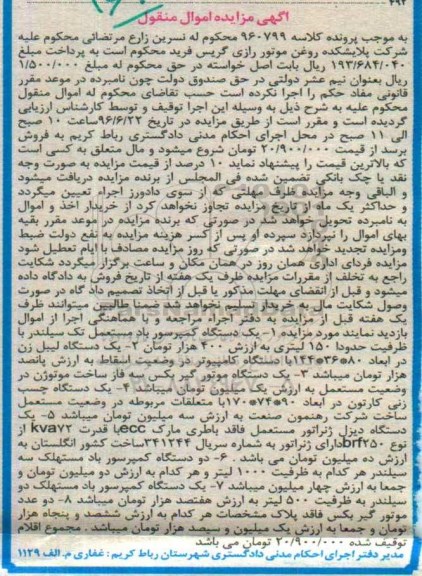 ۴۹۲
آگهی مزایده اموال منقول
به موجب پرونده کلاسه ۹۶۰۷۹۹ محکوم له نسرین زارع مرتضائی محکوم علیه
شرکت پلایشکده روغن موتور رازی گریس فرید محکوم است به پرداخت مبلغ
۱۹۳/۶۸۴/۰۴۰ ریال بابت اصل خواسته در حق محکوم له مبلغ ۱/۵۰۰/۰۰۰
ریال بعنوان نیم عشر دولتی در حق صندوق دولت چون نامبرده در موعد مقرر
قانونی مفاد حکم را اجرا نکرده است حسب تقاضای محکوم له اموال منقول
محکوم علیه به شرح ذیل به وسیله این اجرا توقیف و توسط کارشناس ارزیابی
گردیده است و مقرر است از طریق مزایده در تاریخ ۹۶/۶/۲۲ ساعت ۱۰ صبح
الی ۱۱ صبح در محل اجرای احکام مدنی دادگستری رباط کریم به فروش
برسد از قیمت ۲۰/۹۰۰/۰۰۰ تومان شروع میشود و مال متعلق به کسی است
که بالاترین قیمت را پیشنهاد نماید ۱۰ درصد از قیمت مزایده به صورت وجه
نقد یا چک بانکی تضمین شده فی المجلس از برنده مزایده دریافت میشود
و الباقی وجه مزایده ظرف مهلتی که از سوی دادورز اجراء تعیین میگردد
و حداکثر یک ماه از تاریخ مزایده تجاوز نخواهد کرد از خریدار اخذ و اموال
به نامبرده تحویل خواهد شد در صورتی که برنده مزایده در موعد مقرر بقیه
بهای اموال را نپردازد سپرده او پس از کسر هزینه مزایده به نفع دولت ضبط
ومزایده تجدید خواهد شد در صورتی که روز مزایده مصادف با ایام تعطیل شود
مزایده فردای اداری همان روز در همان مکان و ساعت برگزار میگردد شکایت
راجع به تخلف از مقررات مزایده ظرف یک هفته از تاریخ فروش به دادگاه داده
میشود و قبل از انقضای مهلت مذکور یا قبل از اتخاذ تصمیم دادگاه در صورت
وصول شکایت مال به خریدار تسلیم نخواهد شد ضمنا طالبین میتوانند ظرف
یک هفته قبل از مزایده به دفتر اجرا مراجعه تا با هماهنگی اجرا از اموال
بازدید نمایند مورد مزایده ۱- یک دستگاه کمپرسور باد مستعمل تک سیلندر با
ظرفیت حدودا ۱۵۰ لیتری به ارزش ۴۰۰ هزار تومان ۲- یک دستگاه لیبل زن
در ابعاد ۸۰*۳۶*۱۴۴ با دستگاه کامپیوتر در وضعیت اسقاط به ارزش پانصد
هزار تومان میباشد ۳- یک دستگاه موتور گیر بکس سه فاز ساخت موتوژن در
وضعیت مستعمل به ارزش یک میلیون تومان میباشد ۴- یک دستگاه چسب
زنی کارتون در ابعاد ۹۰*۷۴*۱۷۰ با متعلقات مربوطه در وضعیت مستعمل
ساخت شرکت رهنمون صنعت به ارزش سه میلیون تومان میباشد ۵- یک
دستگاه دیزل ژنراتور مستعمل فاقد باطری مارک ecc با قدرت kva۷۲ از
نوع brf۲۵۰ دارای ژنراتور به شماره سریال ۳۴۱۲۴۴ ساخت کشور انگلستان به
ارزش ده میلیون تومان می باشد . ۶- دو دستگاه کمپرسور باد مستهلک سه
سیلندر هر کدام به ظرفیت ۱۰۰۰ لیتر و هر کدام به ارزش دو میلیون تومان و
جمعا به ارزش چهار میلیون میباشد ۷- یک دستگاه کمپرسور باد مستهلک دو
سیلندر به ظرفیت ۵۰۰ لیتر به ارزش هفتصد هزار تومان میباشد ۸- دو عدد
موتور گیر بکس فاقد پلاک مشخصات هر کدام به ارزش ششصد و پنجاه هزار
تومان و جمعا به ارزش یک میلیون و سیصد هزار تومان میباشد . مجموع اقلام
توقیف شده ۲۰/۹۰۰/۰۰۰ تومان می باشد
مدیر دفتر اجرای احکام مدنی دادگستری شهرستان رباط کریم : غفاری م. الف ۱۱۲۹